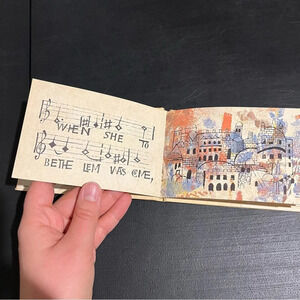 WHEN SHE TO
BETHE LEM WAS COME,